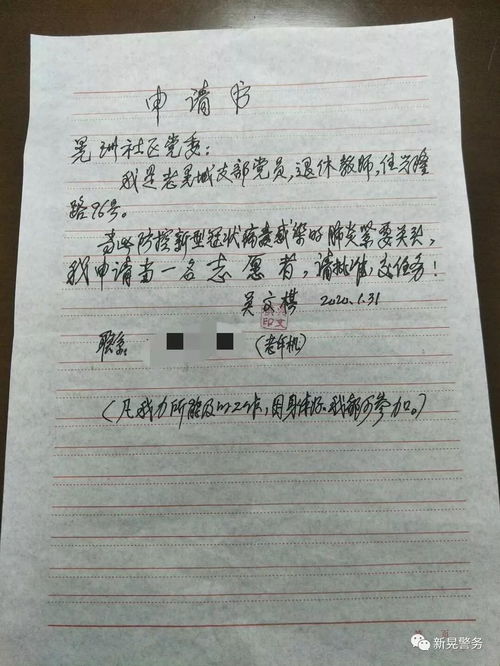 申请书
晃洲社区党委:
我是老晃城支部党员,退休教师,住兴隆
路96号。
当此防控新型冠状病毒感染的肺炎紧要关头,
我申请当一名志愿者,请批准,交任务!
吴文棋 2020.1.31
联系: (老年机)
(凡我力所能及的工作,因身体好,我都可参加。)
新晃警务